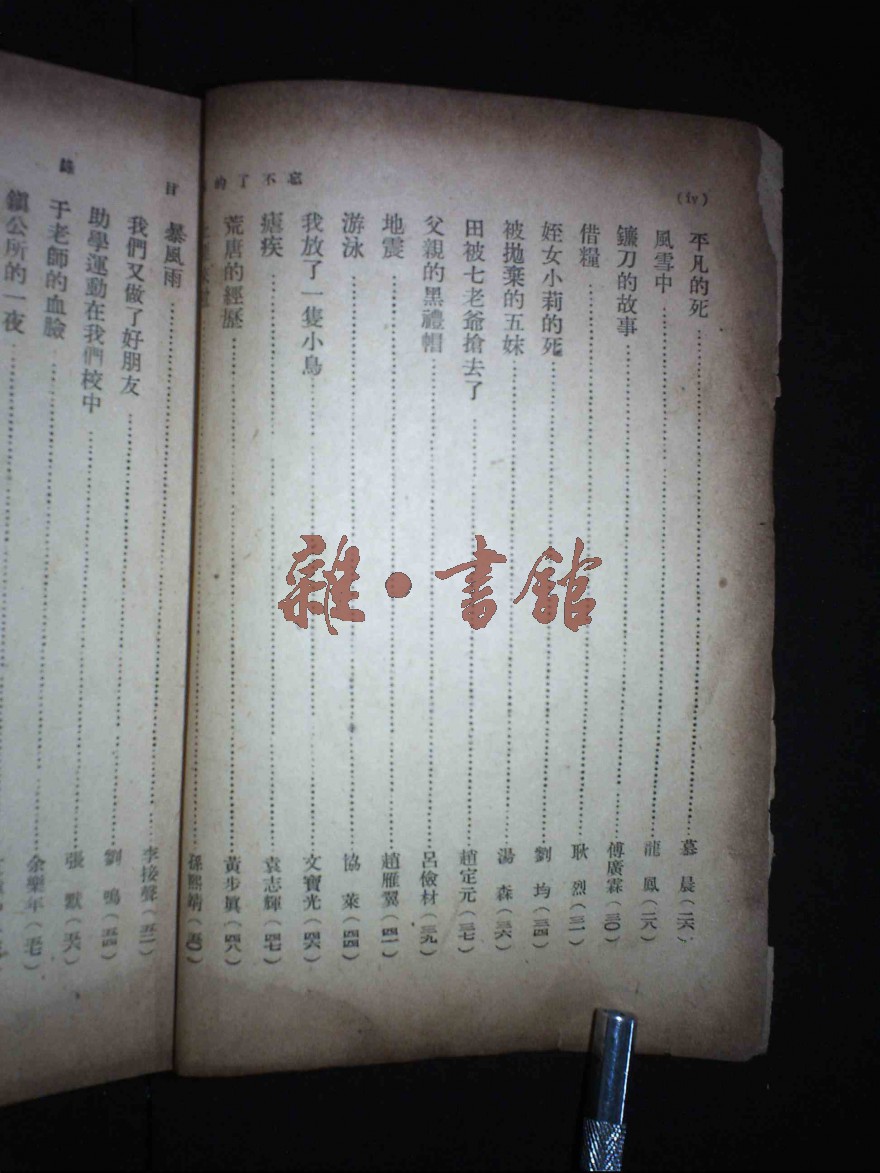 (iv)
的了不忘
平凡的死 慕晨(二六)
風雪中 龍鳳(二八)
鐮刀的故事 傅廣霖(三〇)
借糧 耿烈(三一)
姪女小莉的死 劉均(三四)
被拋棄的五妹 湯森(三六)
田被七老爺搶去了 趙定元(三七)
父親的黑禮帽 呂儉材(三九)
地震 趙雁翼(四一)
游泳 協萊(四四)
我放了一隻小鳥 文寶光(四六)
瘧疾 袁志輝(四七)
荒唐的經歷 黃步眞(四八)
孫熙靖(五〇)
目
錄
暴風雨 李接聲(五二)
我們又做了好朋友 劉鳴(五四)
助學運動在我們校中 張默(五六)
于老師的血臉 余樂年(五七)
鎭公所的一夜
雜·書館